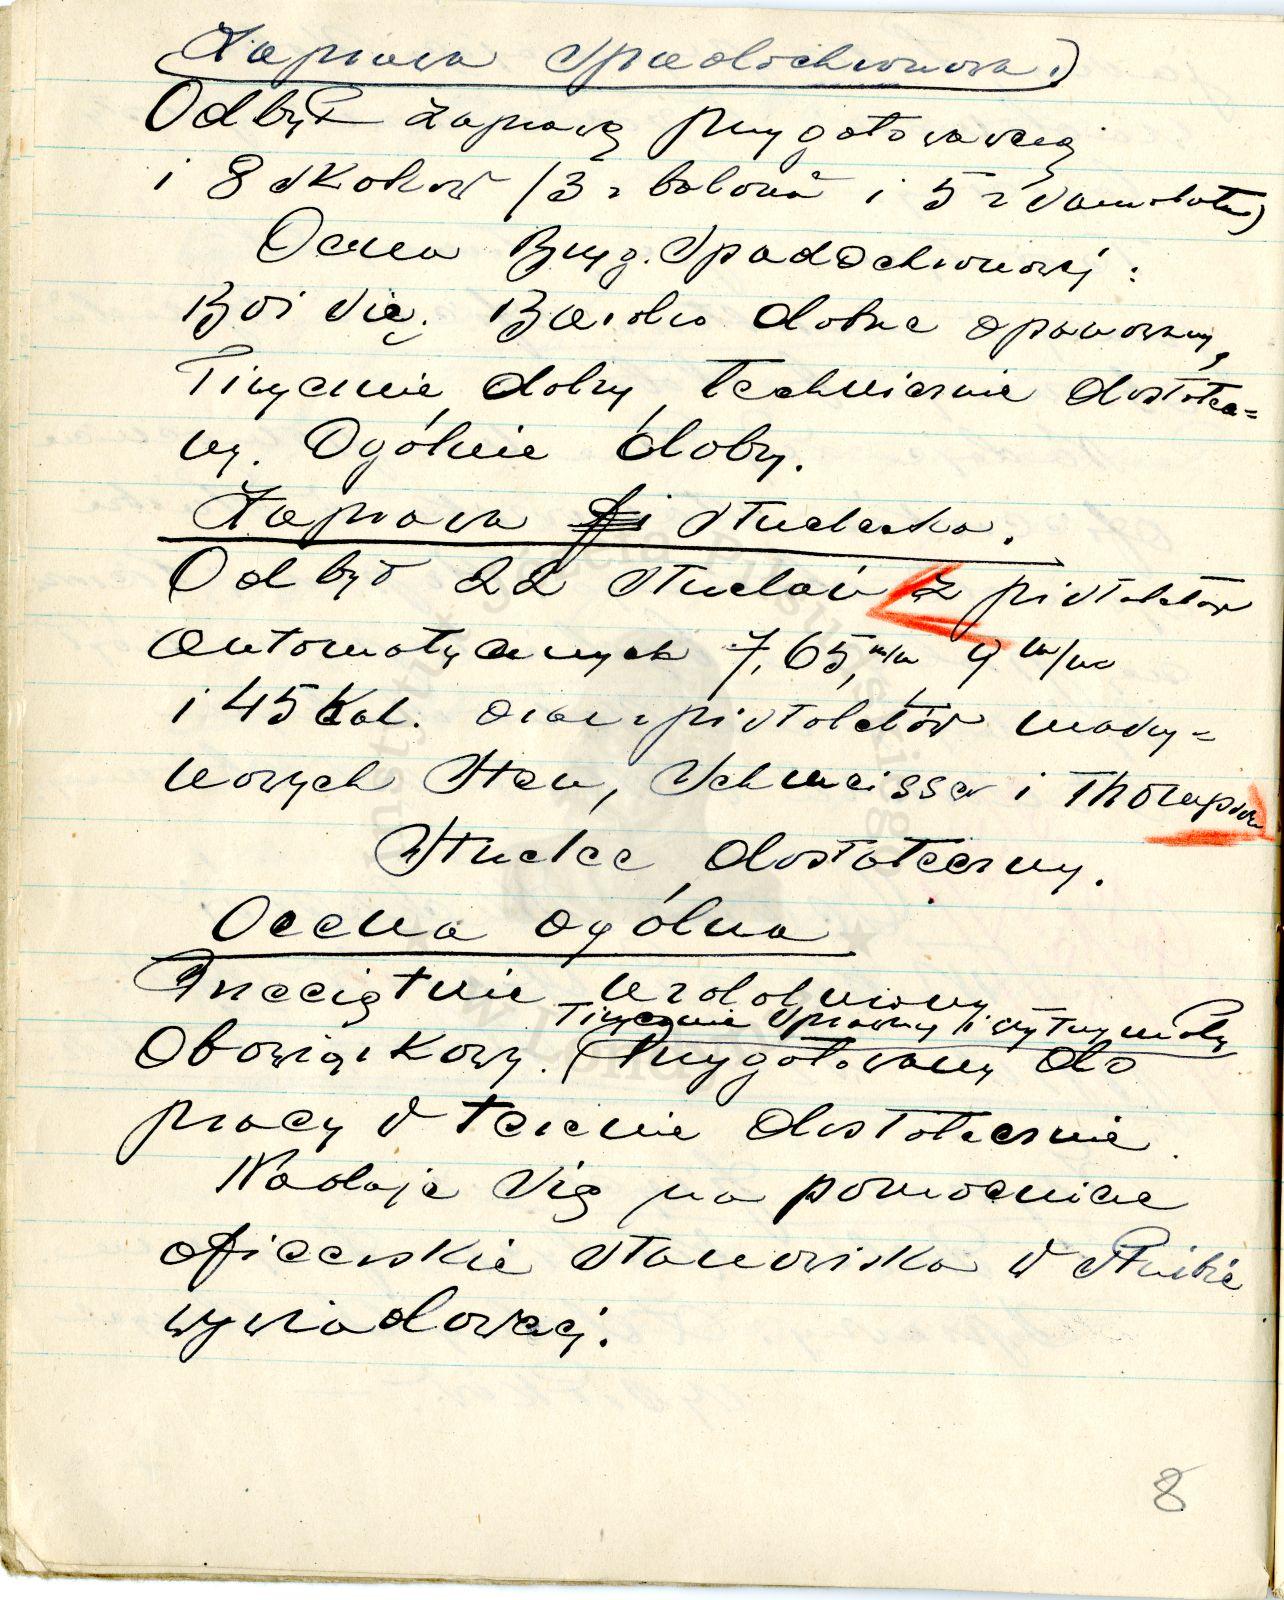 Zaprawa spadochronowa.)
Odbył zaprawę przygotowawczą
i 8 skoków /3 z balonu i 5 z samolotu)
Ocena Bryg. Spadochronowej:
Boi się. Bardzo dobrze opanowany,
Fizycznie dobry, technicznie dostatecz=
ny. Ogólnie dobry.
Zaprawa strzelecka.
Odbył 22 strzelań z pistoletów
automatycznych 7,65, m/m 9 m/m
i 45 kal. oraz pistoletów maszy=
nowych Sten, Schmeisser i Thompson
Strzelec dostateczny.
Ocena ogólna
Przeciętnie uzdolniony
Fizycznie sprawny i wytrzymały
Obowiązkowy. (Przygotowany do
pracy w terenie dostatecznie.
Nadaje się na pomocnicze
oficerskie stanowiska w służbie
wywiadowczej.
8